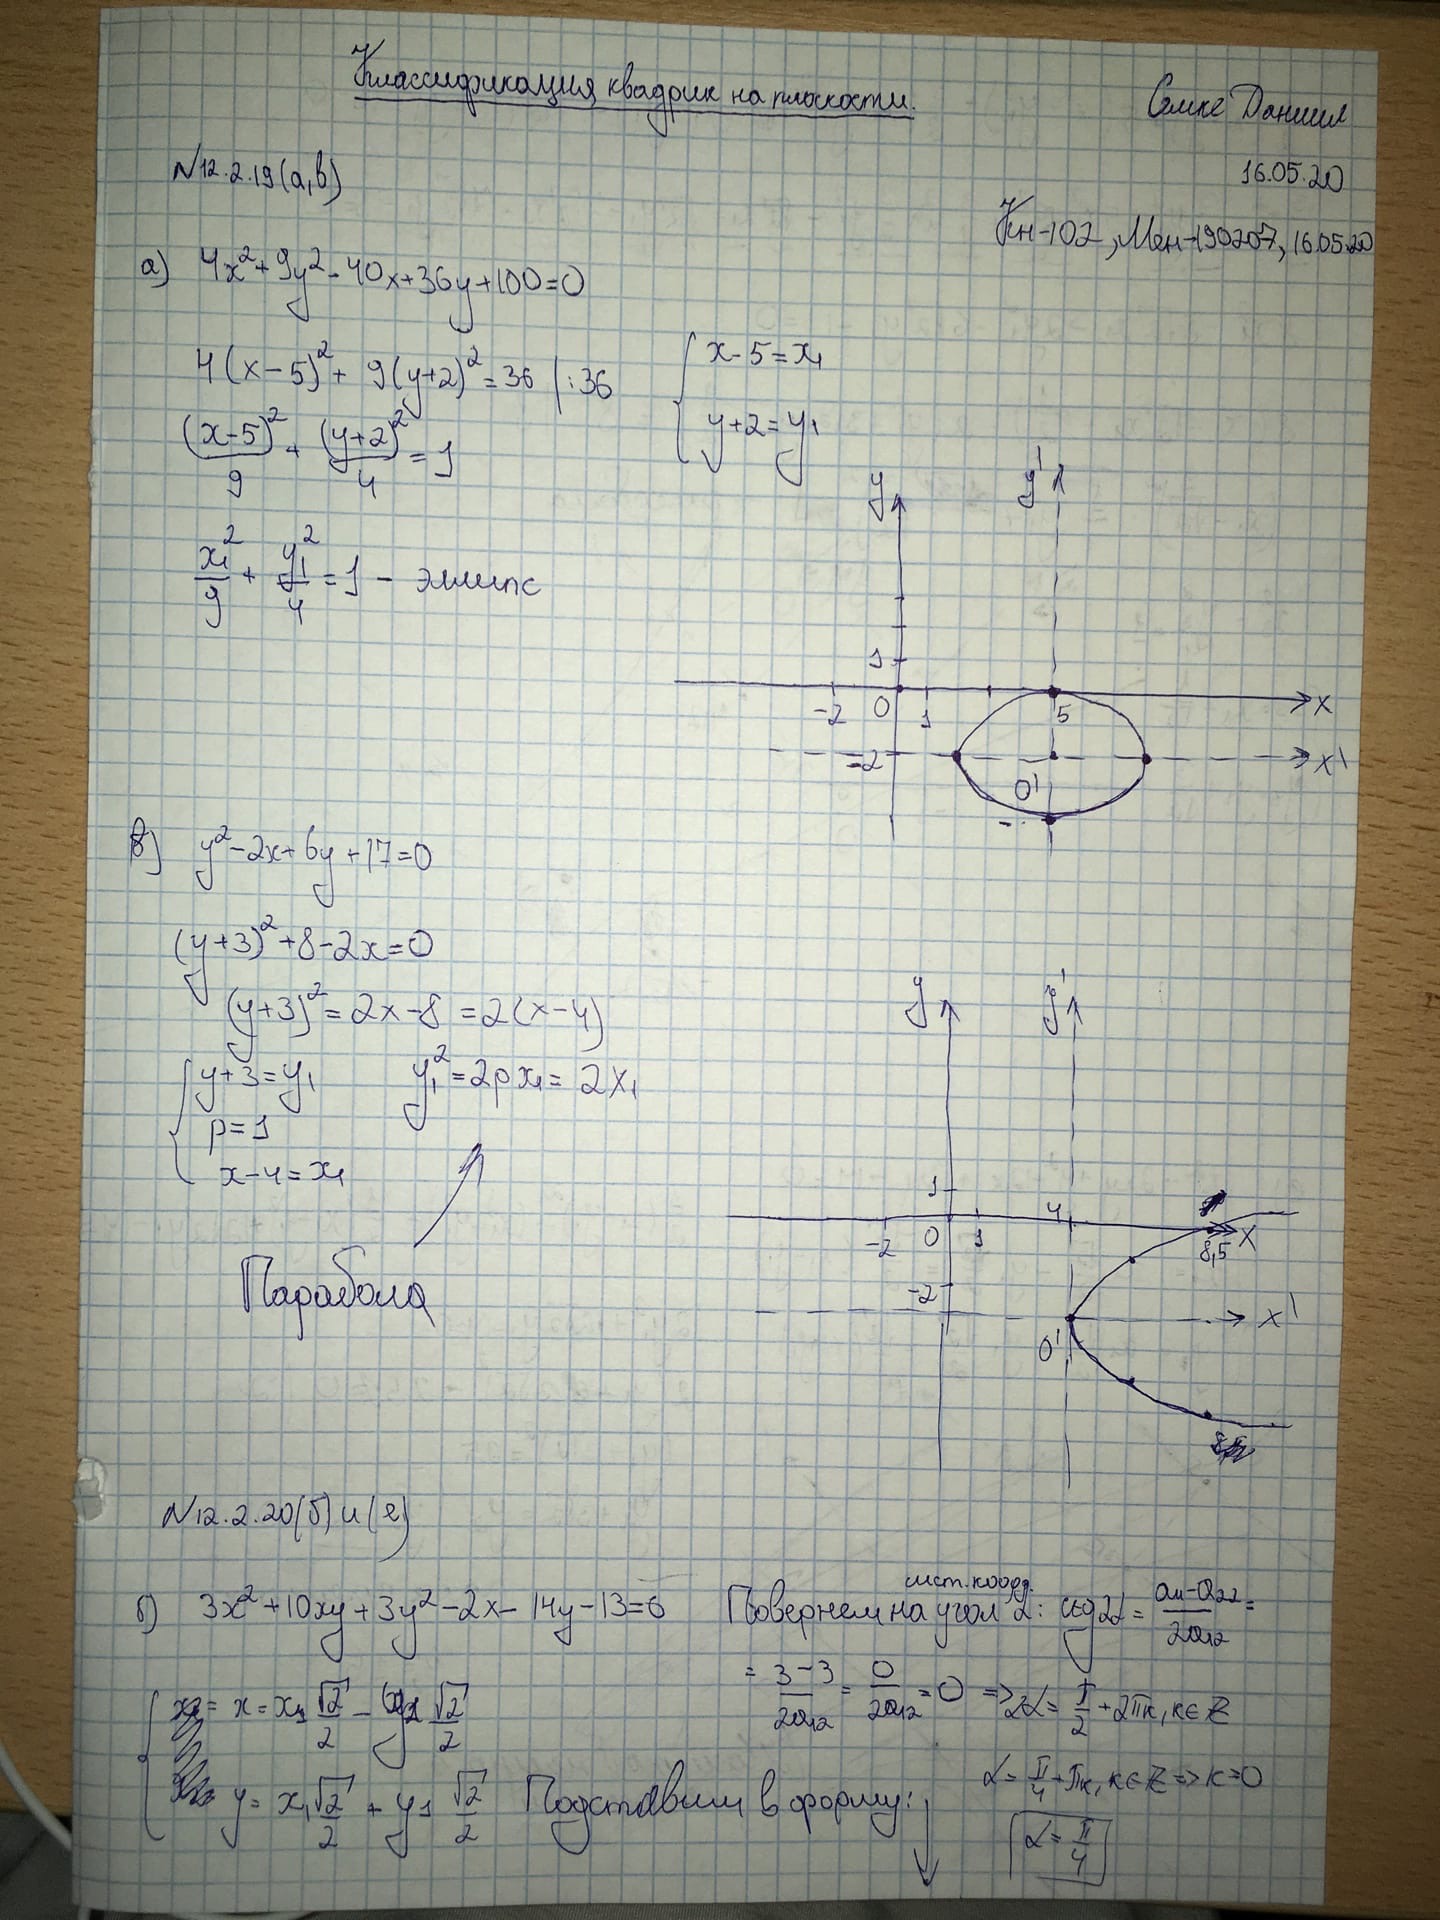 Классификация квадрик на плоскости.
Семке Даниил
16.05.20
N12.2.19(а,в)
Кн-102, Мен-190207, 16.05.20
а) 4x²+9y²-40x+36y+100=0
4(x-5)²+9(y+2)²=36 |:36
{ x-5=x₁
y+2=y₁
(x-5)²/9 + (y+2)²/4 = 1
x₁²/9 + y₁²/4 = 1 - эллипс
y y'
1
-2 0 1 5 x
-2 x'
0'
в) y²-2x+6y+17=0
(y+3)²+8-2x=0
(y+3)²=2x-8=2(x-4)
{ y+3=y₁
p=1
x-4=x₁
y₁²=2px₁=2x₁
Парабола
y y'
1 4
-2 0 1 8,5 x
-2 x'
0'
N12.2.20(б) и (г)
б) 3x²+10xy+3y²-2x-14y-13=0
сист. коорд.
Повернем на угол α: ctg2α = a₁₁-a₂₂/2a₁₂ =
= 3-3/2a₁₂ = 0/2a₁₂ = 0 => 2α = π/2 + 2πk, k∈Z
{ x = x₁ √2/2 - y₁ √2/2
α = π/4 + πk, k∈Z => k=0
y = x₁ √2/2 + y₁ √2/2 Подставим в форму:
α = π/4